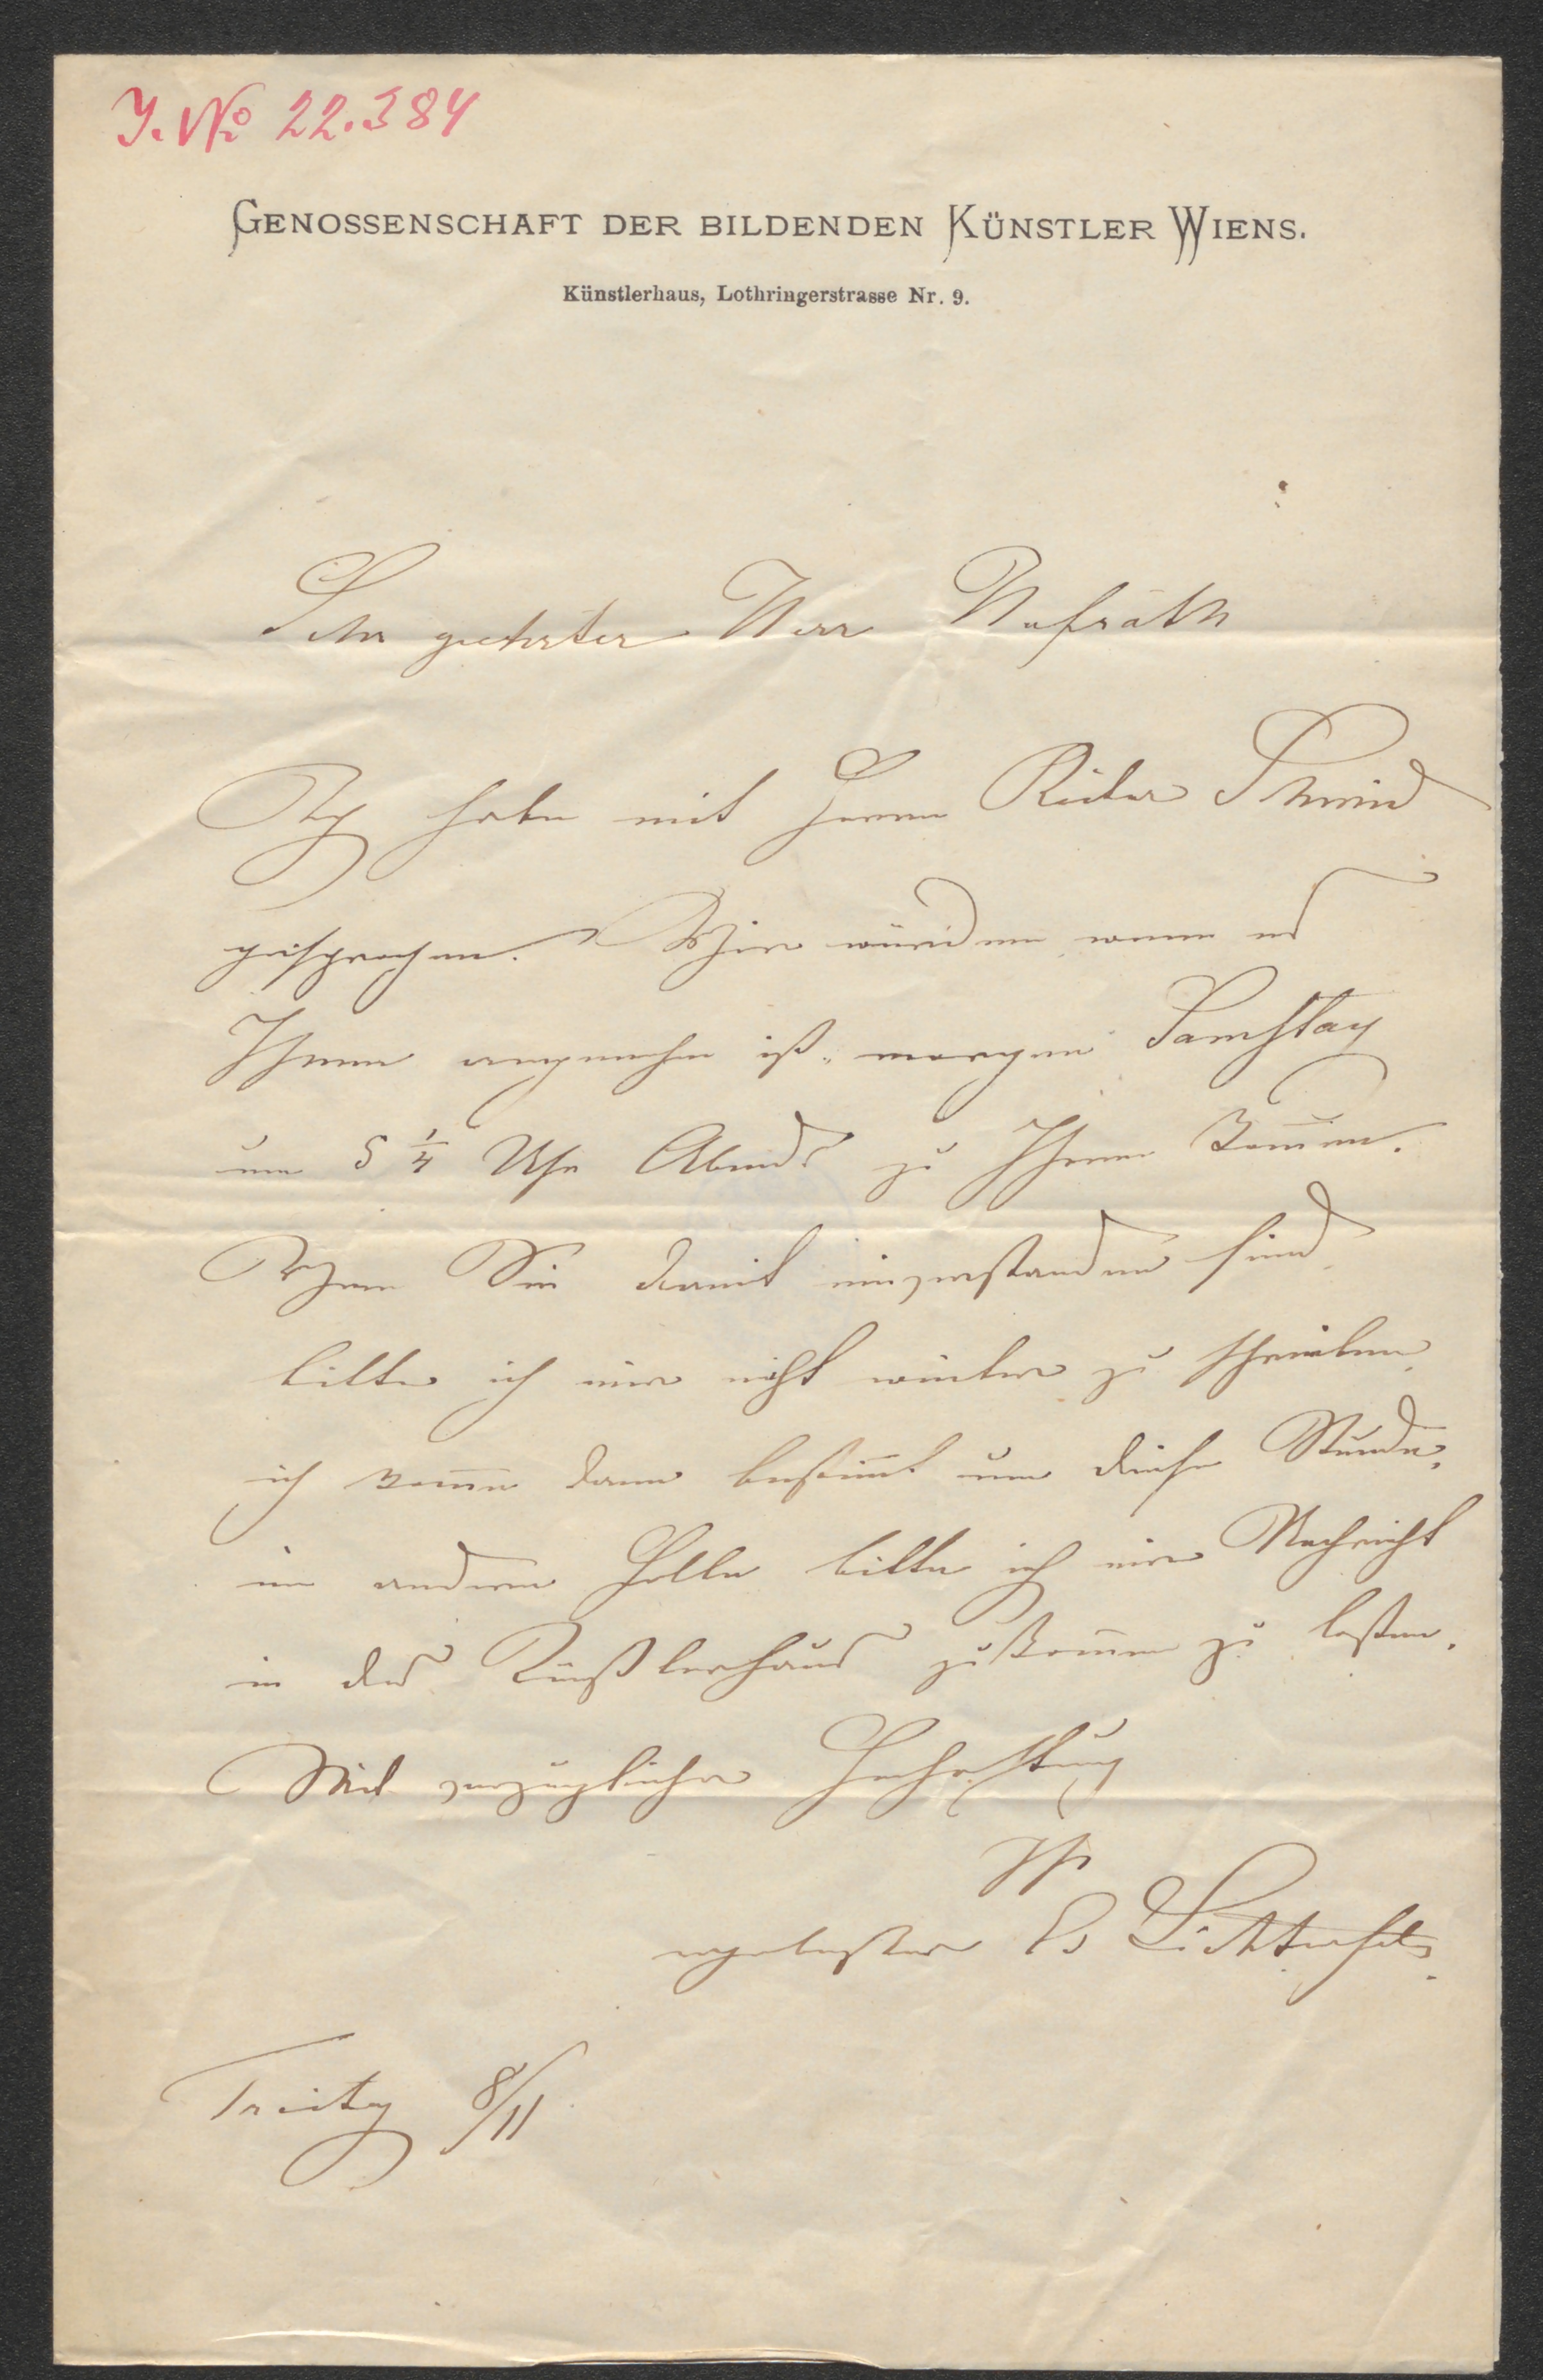 J. No 22.384
GENOSSENSCHAFT DER BILDENDEN KÜNSTLER WIENS.
Künstlerhaus, Lothringerstrasse Nr. 9.
Sehr geehrter Herr Hofrath
Ich habe mit Herrn Schmid
gesprochen. Wir würden wenn es
Ihnen angenehm ist, morgen Samstag
um 5 1/4 Uhr Abends zu Ihnen kom̄en.
Wenn Sie damit einverstanden sind,
bitte ich mir nicht weiter zu schreiben,
ich kom̄e dann bestim̄t um diese Stunde,
im andern Falle bitte ich mir Nachricht
in das Künstlerhaus zukom̄en zu lassen.
Mit vorzüglicher Hochachtung
Ihr
ergebenster Ed Lichtenfels
Freitag 8/11